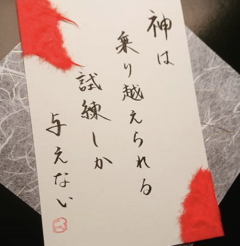 神は
乗り越えられる
試練しか
与えない